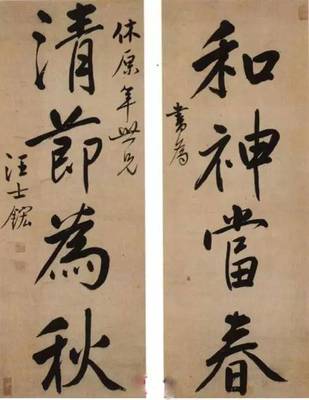 和神當春
書為
休原年世兄
清節為秋
汪士鋐